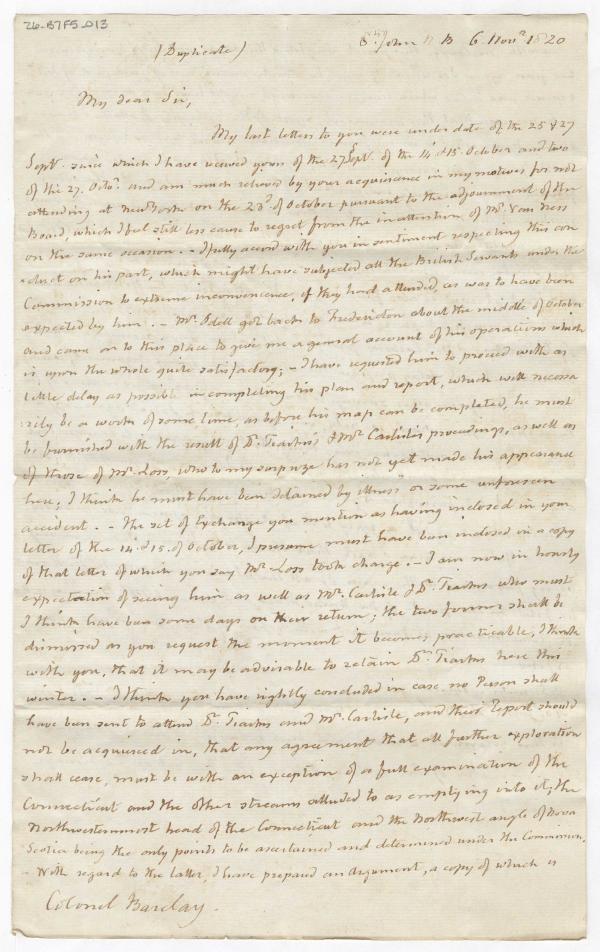 26-B7F5-013
(Duplicate)
St. John N B 6. Novr. 1820
My dear Sir,
My last letters to you were under date of the 25 & 27
Sept. since which I have received yours of the 27 Sept. of the 14 & 15. October and two
of the 27. Octor. and am much relieved by your acquiescence in my motives for not
attending at New York on the 23d. of October pursuant to the adjournment of the
Board, which I feel still less cause to regret from the inattention of Mr. Van Ness
on the same occasion. - I fully accord with you in sentiment respecting this con
duct on his part, which might have subjected all the British Servants under the
Commission to extreme inconvenience, if they had attended, as was to have been
expected by him. - Mr. Odell got back to Fredericton about the middle of October
and came on to this place to give me a general account of his operations which
is upon the whole quite satisfactory; - I have requested him to proceed with as
little delay as possible in completing his plan and report, which will necessa
rily be a work of some time, as before his map can be completed, he must
be furnished with the result of Dr. Tiarks's & Mr. Carlile's proceedings, as well as
of those of Mr. Loss, who to my surprize has not yet made his appearance
here; I think he must have been detained by illness or some unforeseen
accident. - The set of Exchange you mention as having inclosed in your
letter of the 14. & 15. of October, I presume must have been inclosed in a copy
of that letter of which you say Mr. Loss took charge. - I am now in hourly
expectation of seeing him as well as Mr. Carlile & Dr. Tiarks who must
I think have been some days on their return; the two former shall be
dismissed as you request the moment it becomes practicable, I think
with you, that it may be advisable to retain Dr. Tiarks here this
winter. - I think you have rightly concluded in case no Person shall
have been sent to attend Dr. Tiarks and Mr. Carlile, and their Report should
not be acquiesced in, that any agreement that all further exploration
shall cease, must be with an exception of a full examination of the
Connecticut and the other streams alluded to as emptying into it; the
Northwesternmost head of the Connecticut and the Northwest angle of Nova
Scotia being the only points to be ascertained and determined under the Commission.
- With regard to the latter, I have prepared an argument, a copy of which is
Colonel Barclay.